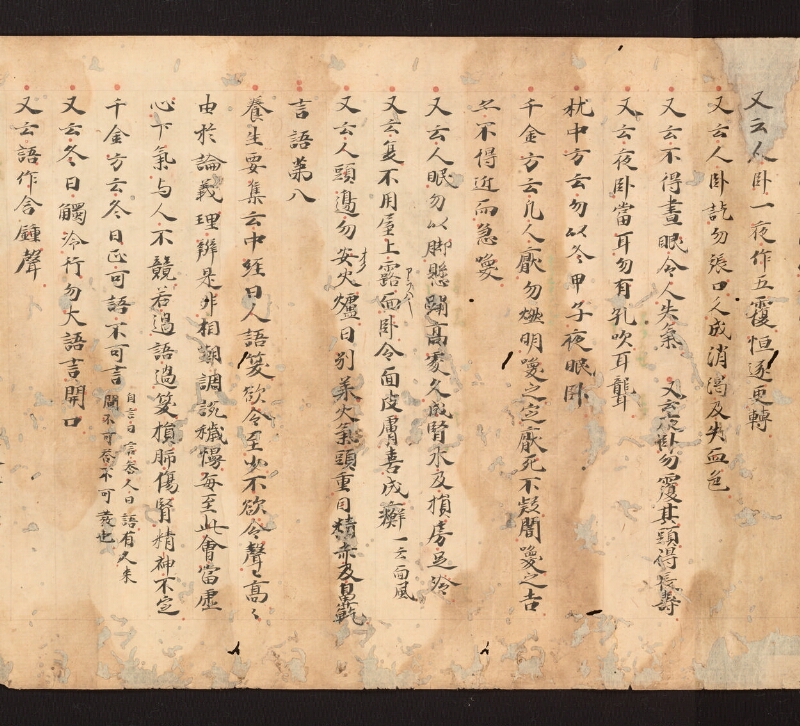 又云人卧一夜作五覆恒逐更轉
又云人卧訖勿張口久成消渇及失血色
又云不得晝眠令人失氣 又云夜卧勿覆其頭得長壽
又云夜卧當耳勿有孔吹耳聾
枕中方云勿以冬甲子夜眠卧
千金方云凡人厭勿燃明喚之定厭死不疑闇喚之吉
亦不得近而急喚
又云人眠勿以脚懸蹋高處久成腎水及損房足冷
又云隻不用屋上露面卧令面皮膚喜成癬一云面風
又云人頭邊勿安火爐日別菜火氣頭重目精赤及鼻乾
言語第八
養生要集云中経曰人語笑欲令至少不欲令聲〻高〻
由於論義理辨是非相嘲調説穢慢每至此會當虚
心下氣与人不競若過語過笑損肺傷腎精神不定
千金方云冬日正可語不可言自言曰言荅人曰語有人来問不可荅不可發也
又云冬日觸冷行勿大語言開口
又云語作含鍾聲